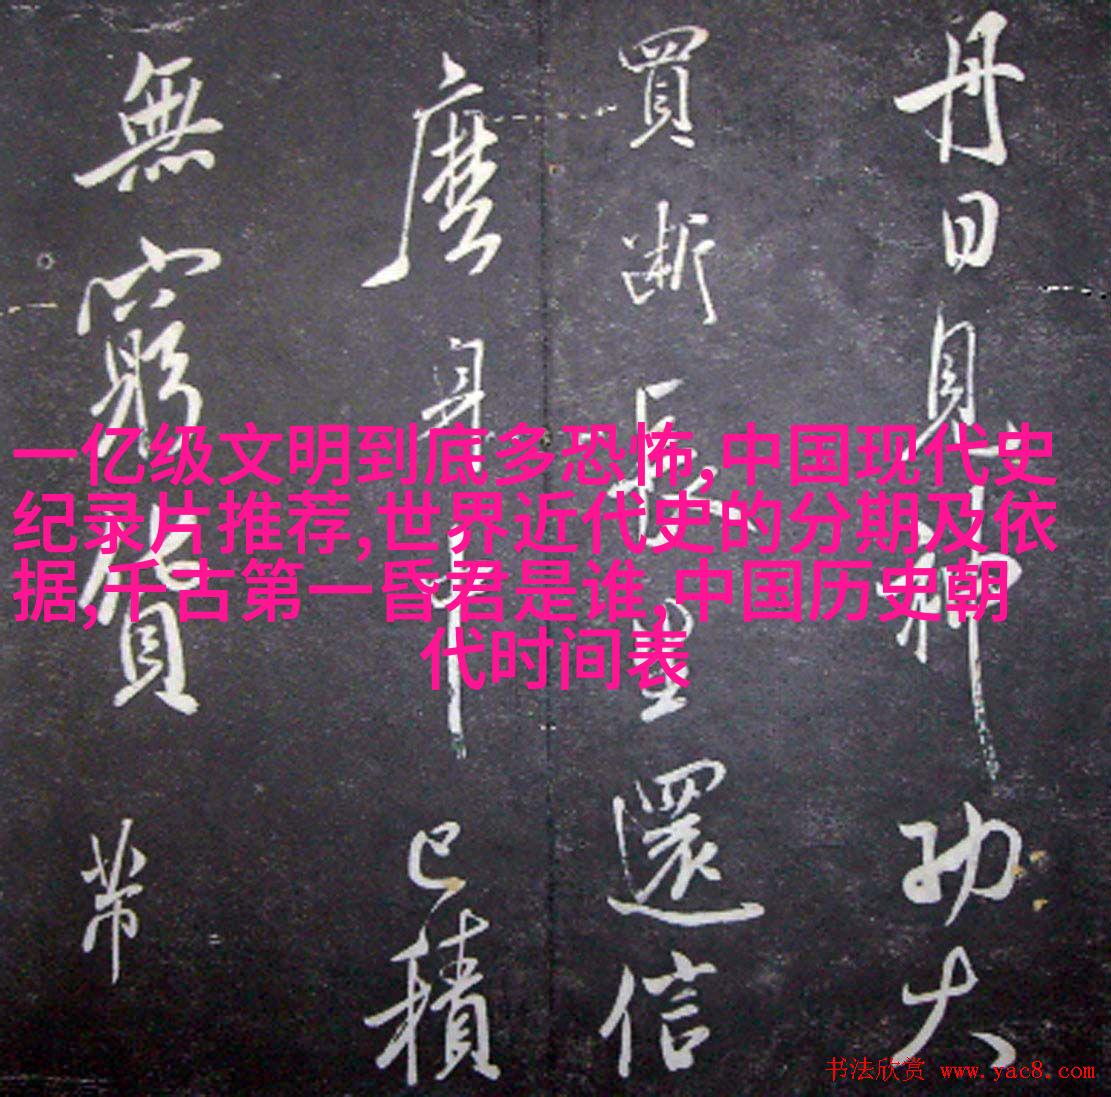 丹日見神功大
買斷長生還信
麽身中已積
無窮貨带
一亿级文明到底多恐怖,中国现代史
纪录片推荐,世界近代史的分期及依
据,千古第一昏君是谁,中国历史朝
代时间表
书法欣赏 www.yac8.com